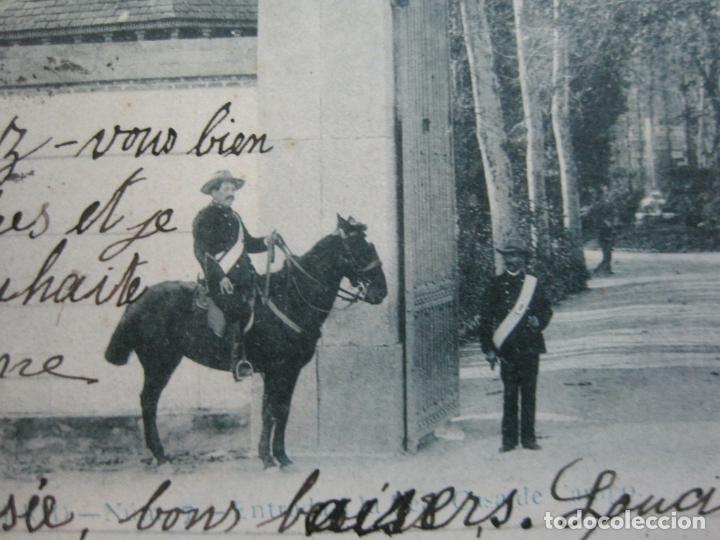 z-vous bien
es et je
uhaite
me
sie, bons baisers. Loua
Entrada Casa de Campo.
todocoleccion.net